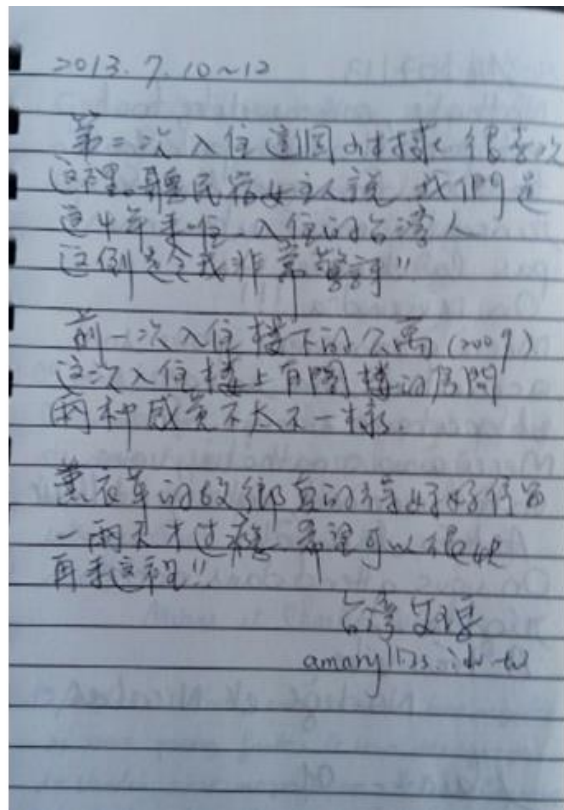 2013.7.10~12
第二次入住這個 很喜歡
這裡。聽民宿女主人說 我們是
這4年來唯一入住的台灣人
這倒是令我非常驚訝"
前一次入住樓下的公寓(2009)
這次入住樓上有閣樓的房間
兩种感覺不太不一樣
薰衣草的故鄉真的得好好停留
一兩天才过癮 希望可以很快
再來這裡"
台灣
amaryllis.idv.tw